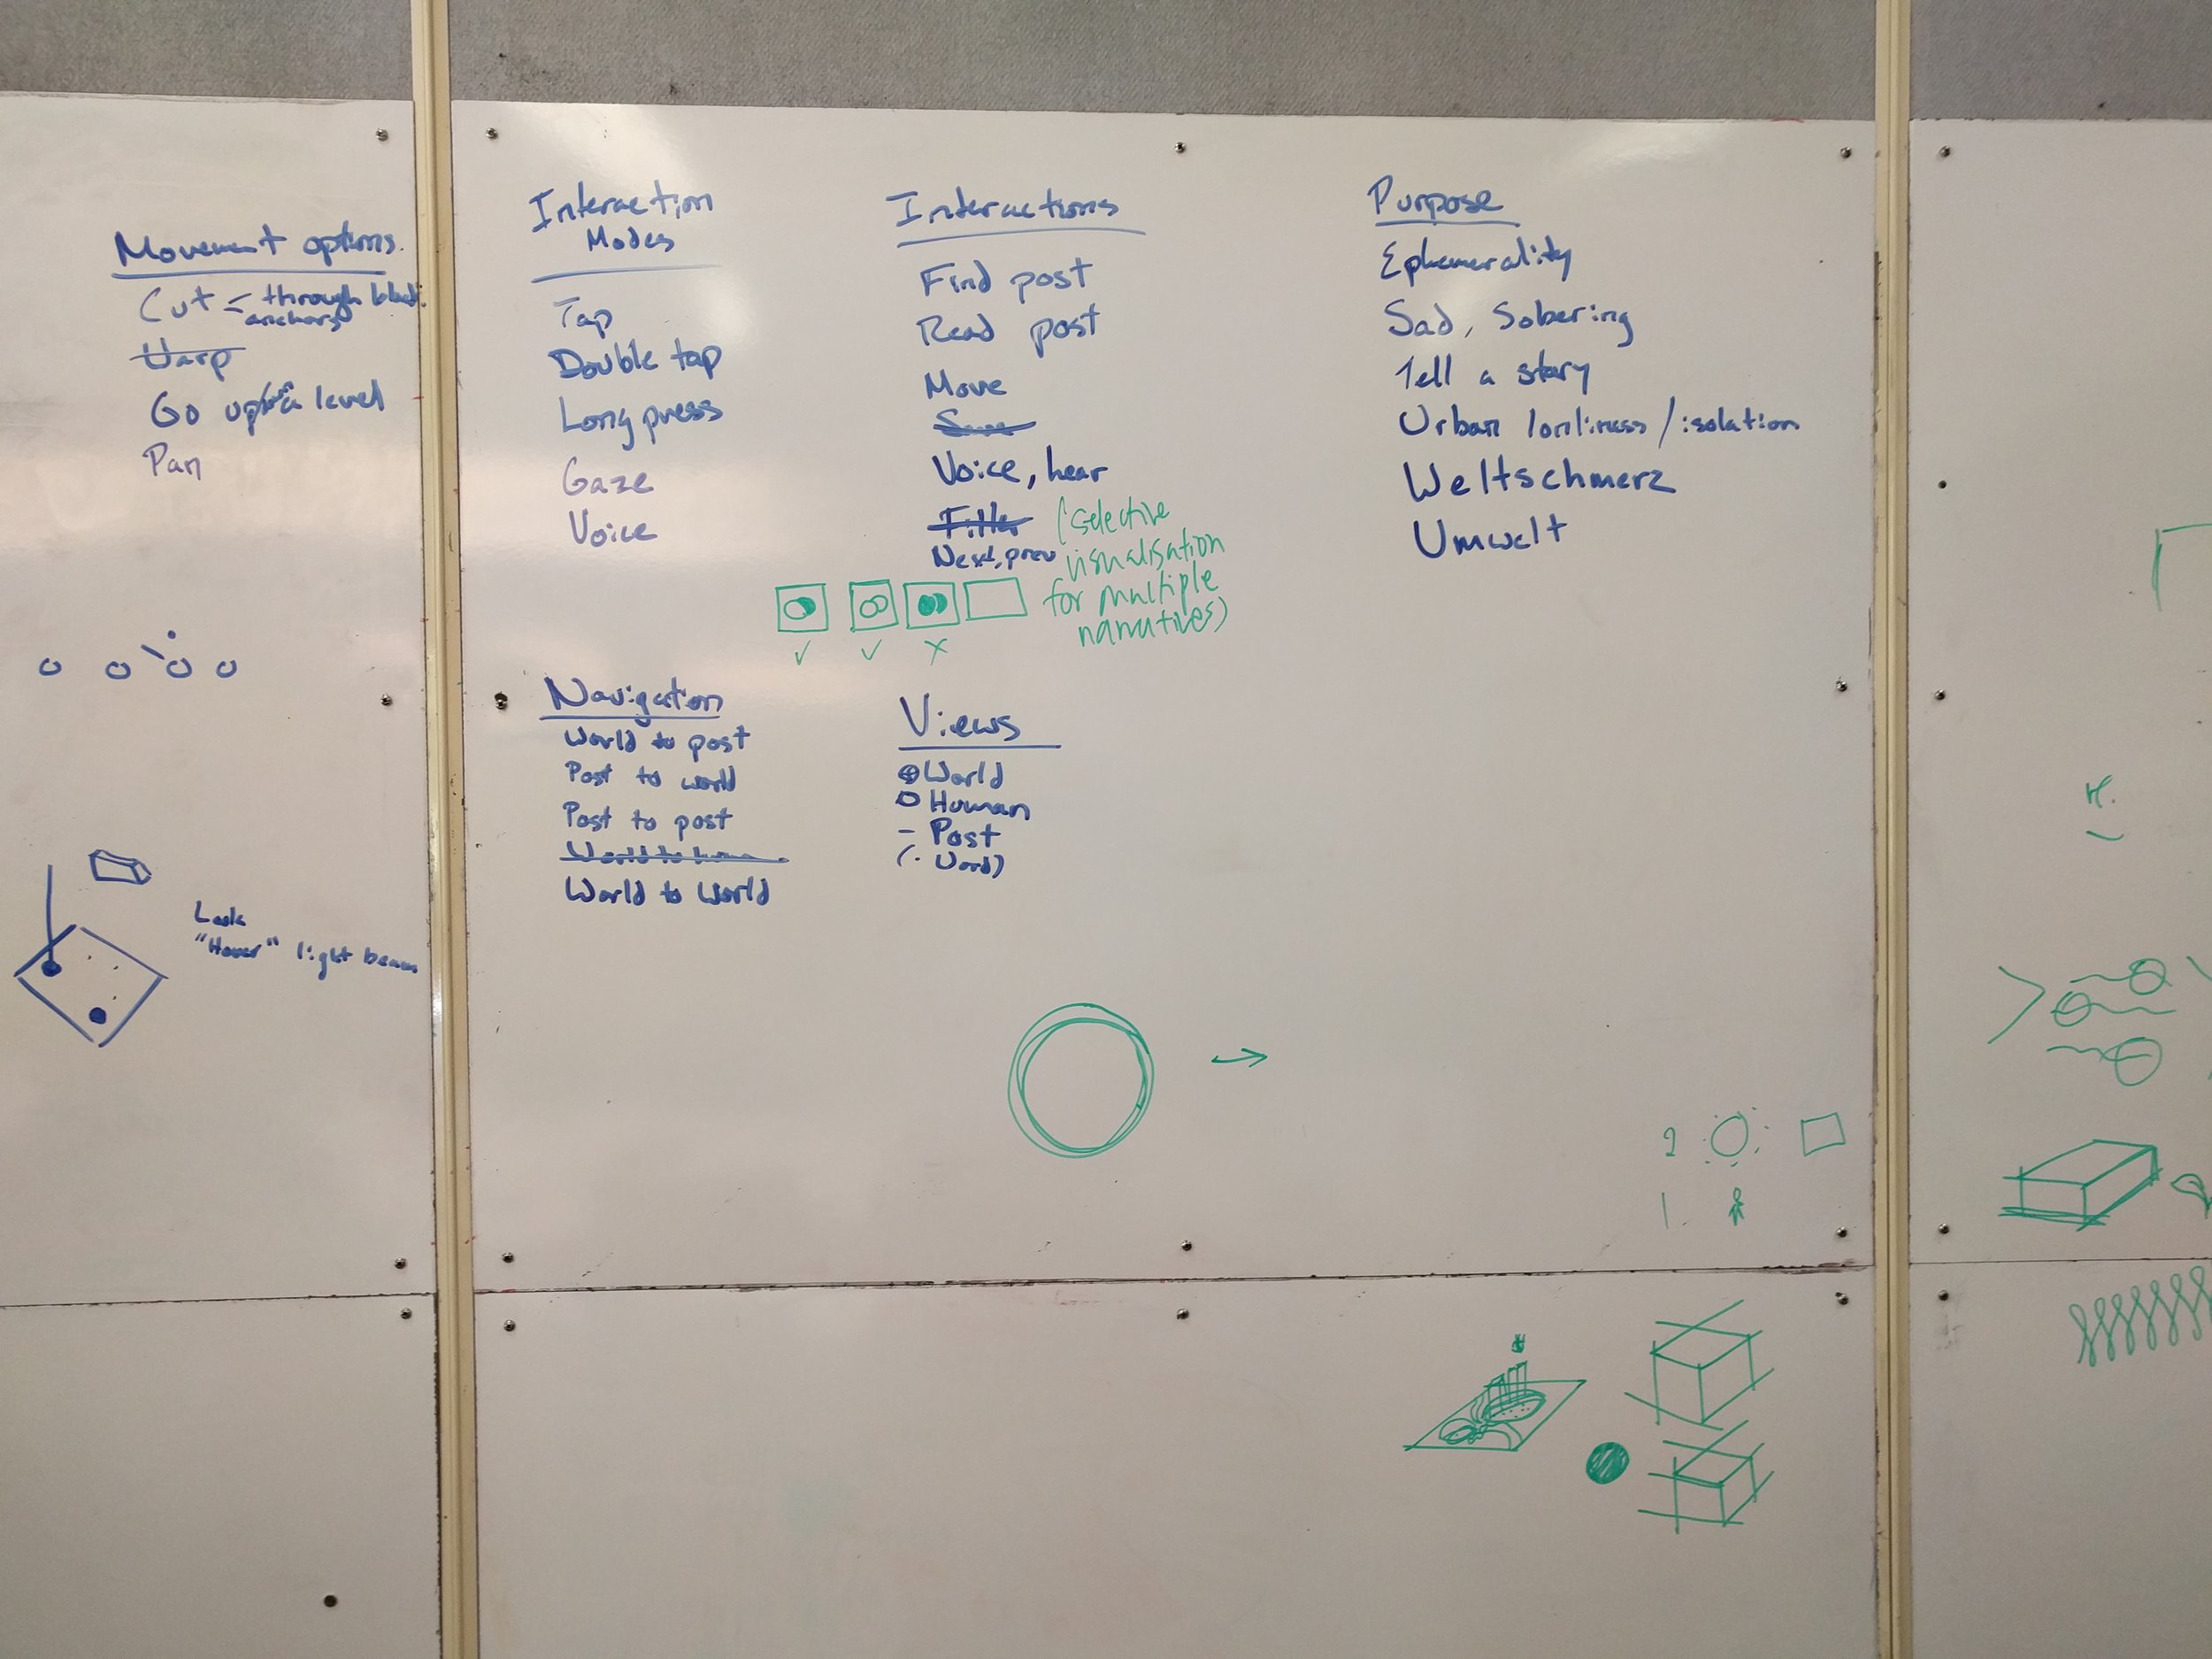 Movement options.
Cut - through black.
- anchors
Warp
Go up a level
Pan
Look
"Hover" light beam
Interaction
Modes
Tap
Double tap
Long press
Gaze
Voice
Interactions
Find post
Read post
Move
Voice, hear
Filter (selective
Next, prev visualisation
for multiple
narratives)
Purpose
Ephemerality
Sad, Sobering
Tell a story
Urban lonliness/isolation
Weltschmerz
Umwelt
Navigation
World to post
Post to world
Post to post
World to
World to World
Views
World
Human
- Post
(. Word)
2
1.